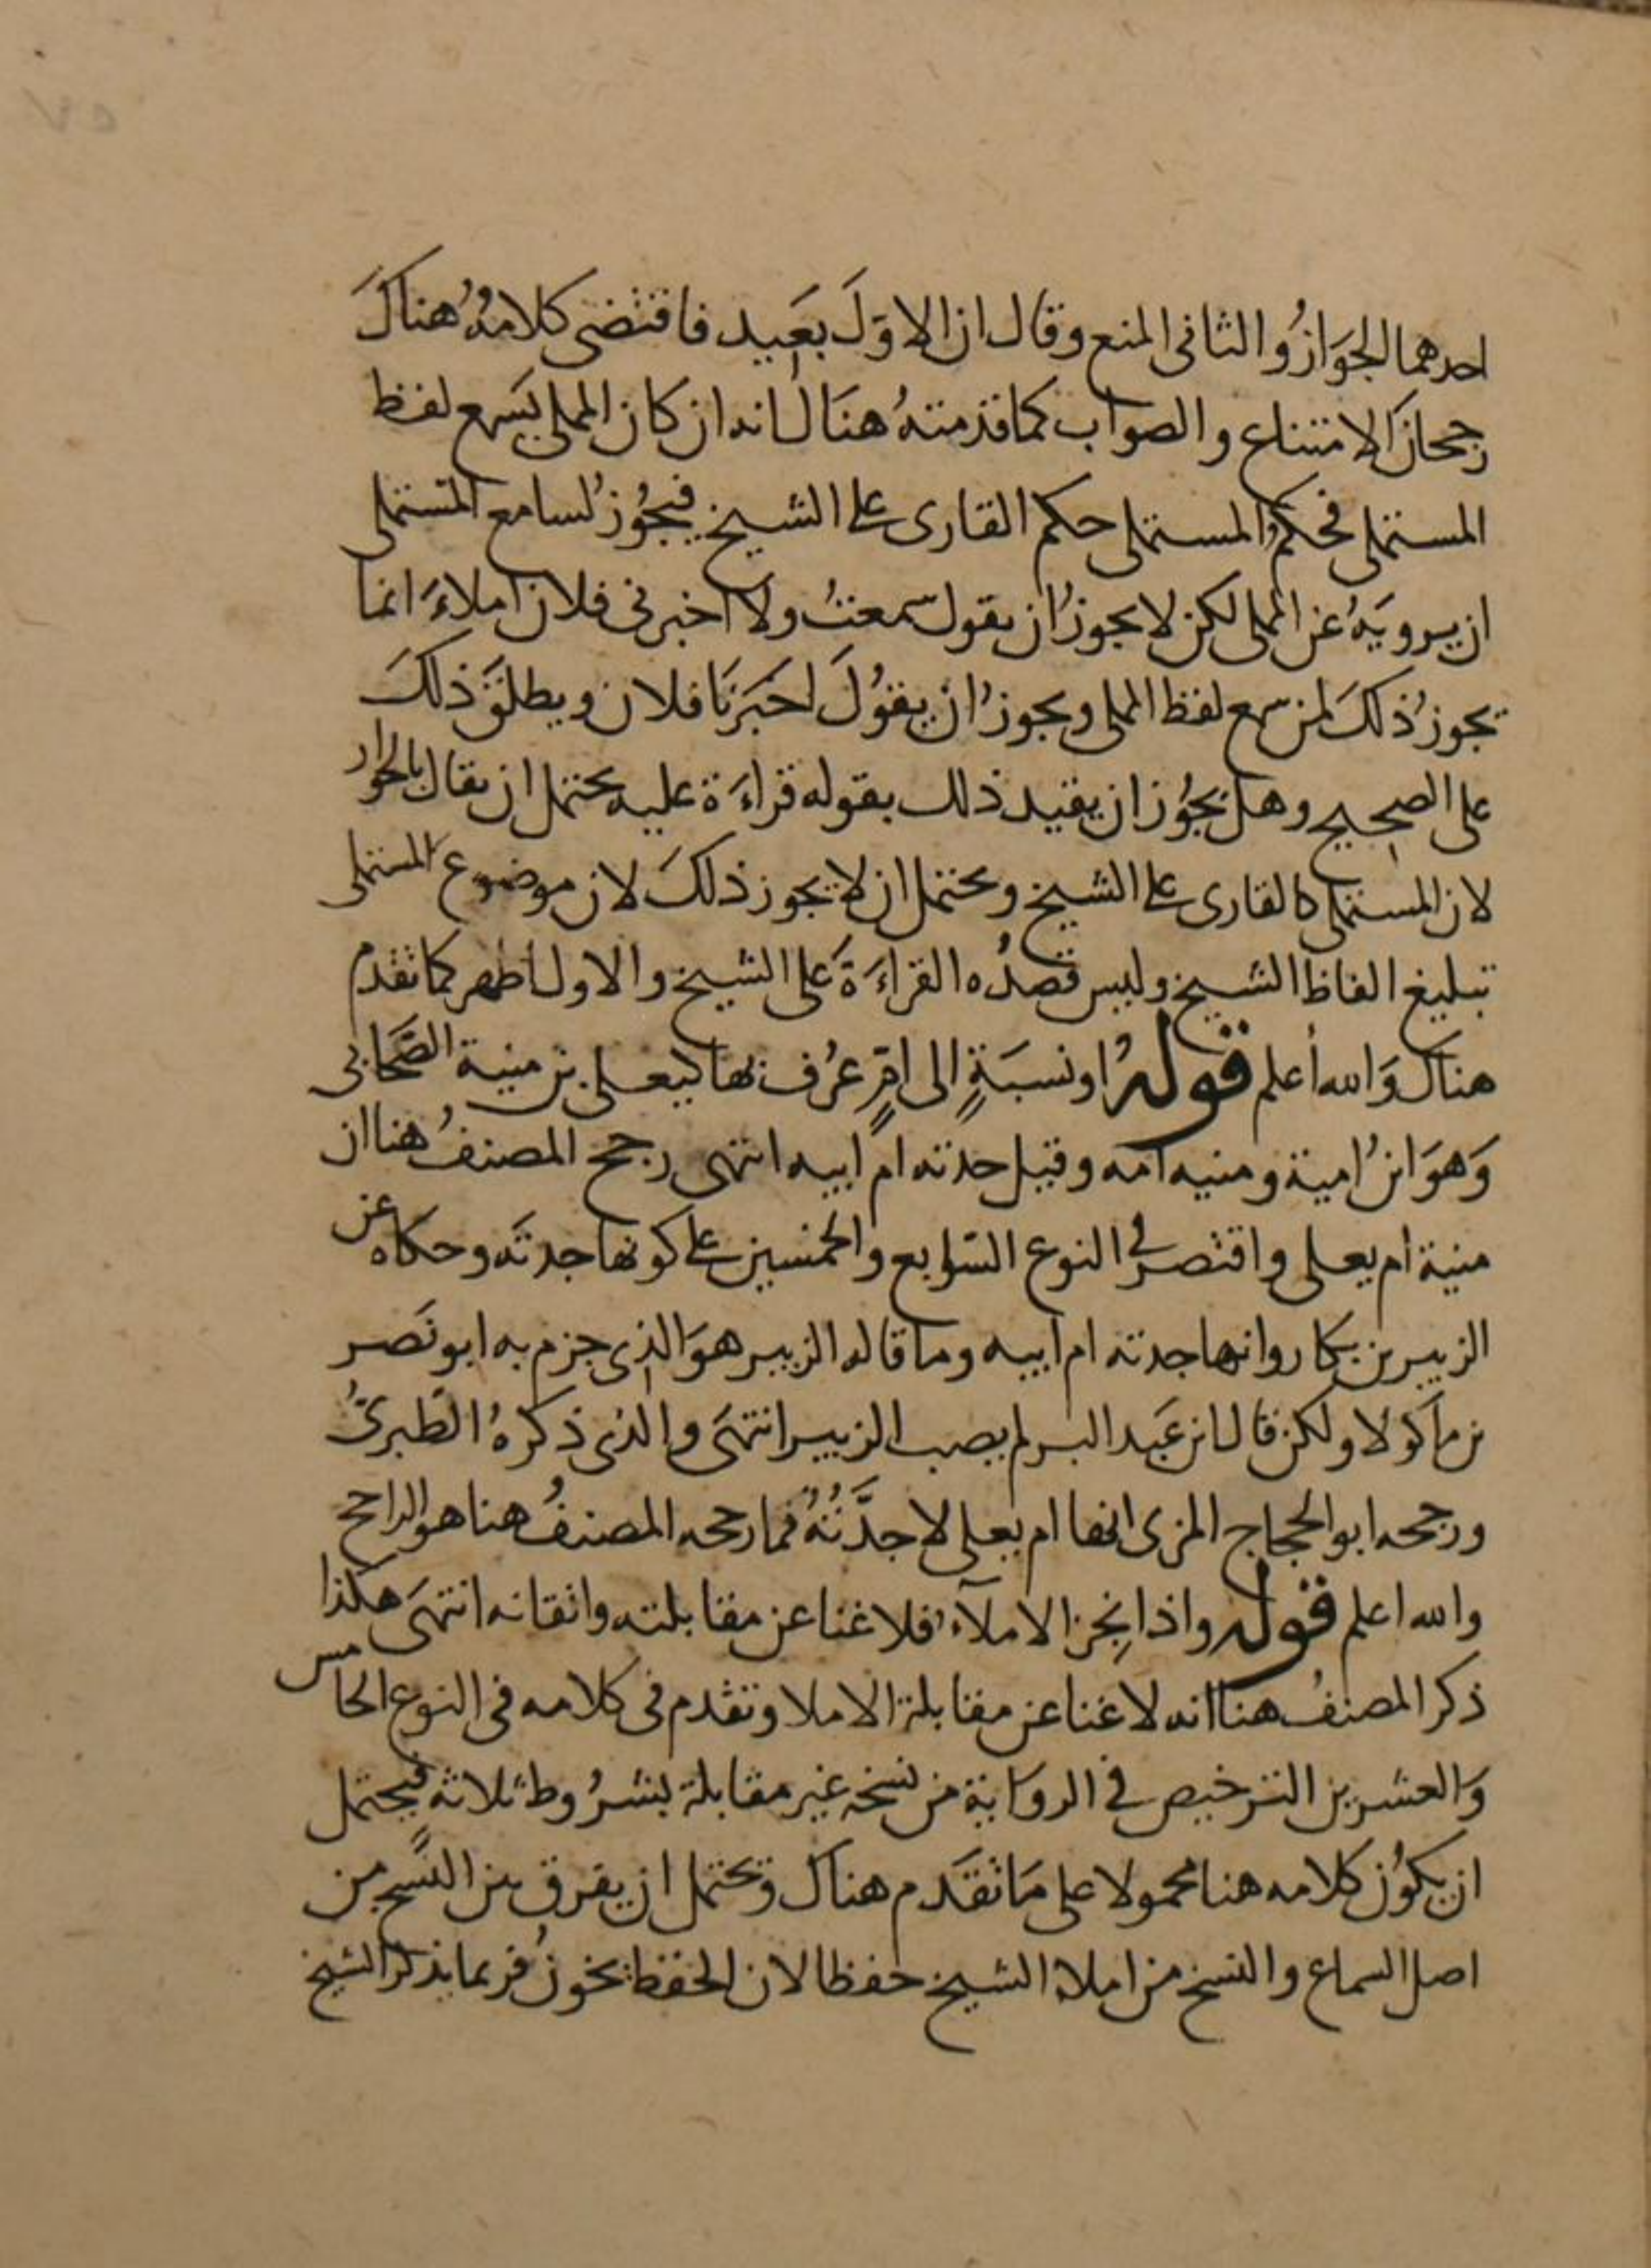 احدهما الجَوَازُ والثانى المنع وقال ان الاوّلَ بعَيد فاقتضى كلامُهُ هناكَ
رجحانَ الامتناع والصواب كما قدمتهُ هنَاك انه ان كان المملى يَسمع لفظ
المستملى فحكم المستملى حكم القارى على الشيخ فيجُوز لسامع المستملى
ان يرويَهُ عن المملى لكن لا يجوزُ ان يقول سَمعتُ ولا اخبرنى فلان املاءَ انما
يجوزُ ذلكَ لمن سمع لفظ المملى ويجوزُ ان يقوُلَ اخبَرَنَا فلان ويطلقَ ذلكَ
على الصحيح وهل يجُوز ان يقيد ذلك بقوله قراءَة عليه يحتمل ان يقال بالجواز
لان المستملى كالقارى على الشيخ ويحتمل ان لا يجوز ذلكَ لان موضوع المستملى
تبليغ الفاظ الشيخ وليس قصدُه القراءَةَ على الشيخ والاول اظهر كما تقدم
هناك وَالله أعلم قولهُ او نسبَةٍ إلى امٍّ عرُف بها كيعلى بن منية الصَّحَابى
وَهوَ ابنُ امية ومنيه امه وقيل جدته ام ابيه انتهى رجح المصنفُ هنا ان
منية ام يعلى واقتصر فى النوع السَّابع والخمسين على كونها جدتَه وحكاه عن
الزبير بن بكار وانها جدته ام ابيه وما قاله الزبير هوَ الذى جزم به ابو نَصر
بن مَاكولا ولكن قال ابن عَبد البر لم يصب الزبير انتهَى والذى ذكرهُ الطَبرىُّ
ورجحه ابو الحجاج المزى انها ام يعلى لا جدَّتُهُ فما رجحه المصنفُ هنا هو الراجح
والله اعلم قوله واذا نجِز الاملآء فلا غنا عن مقابلته واتقانه انتهَى هكذا
ذكر المصنفُ هنا انه لا غنا عن مقابلة الاملا وتقدم فى كلامه فى النوع الخامس
وَالعشرين الترخيص فى الروَاية من نسخه غير مقابلة بشرُوط ثلاثة فيحتمل
ان يكُون كلامه هنا محمولا على مَا تقَدم هناك ويحتمل ان يفرق بين النَّسخ من
اصل السماع والنسخ من املاء الشيخ حفظا لان الحفظ يخونُ فربما يذكر الشيخ